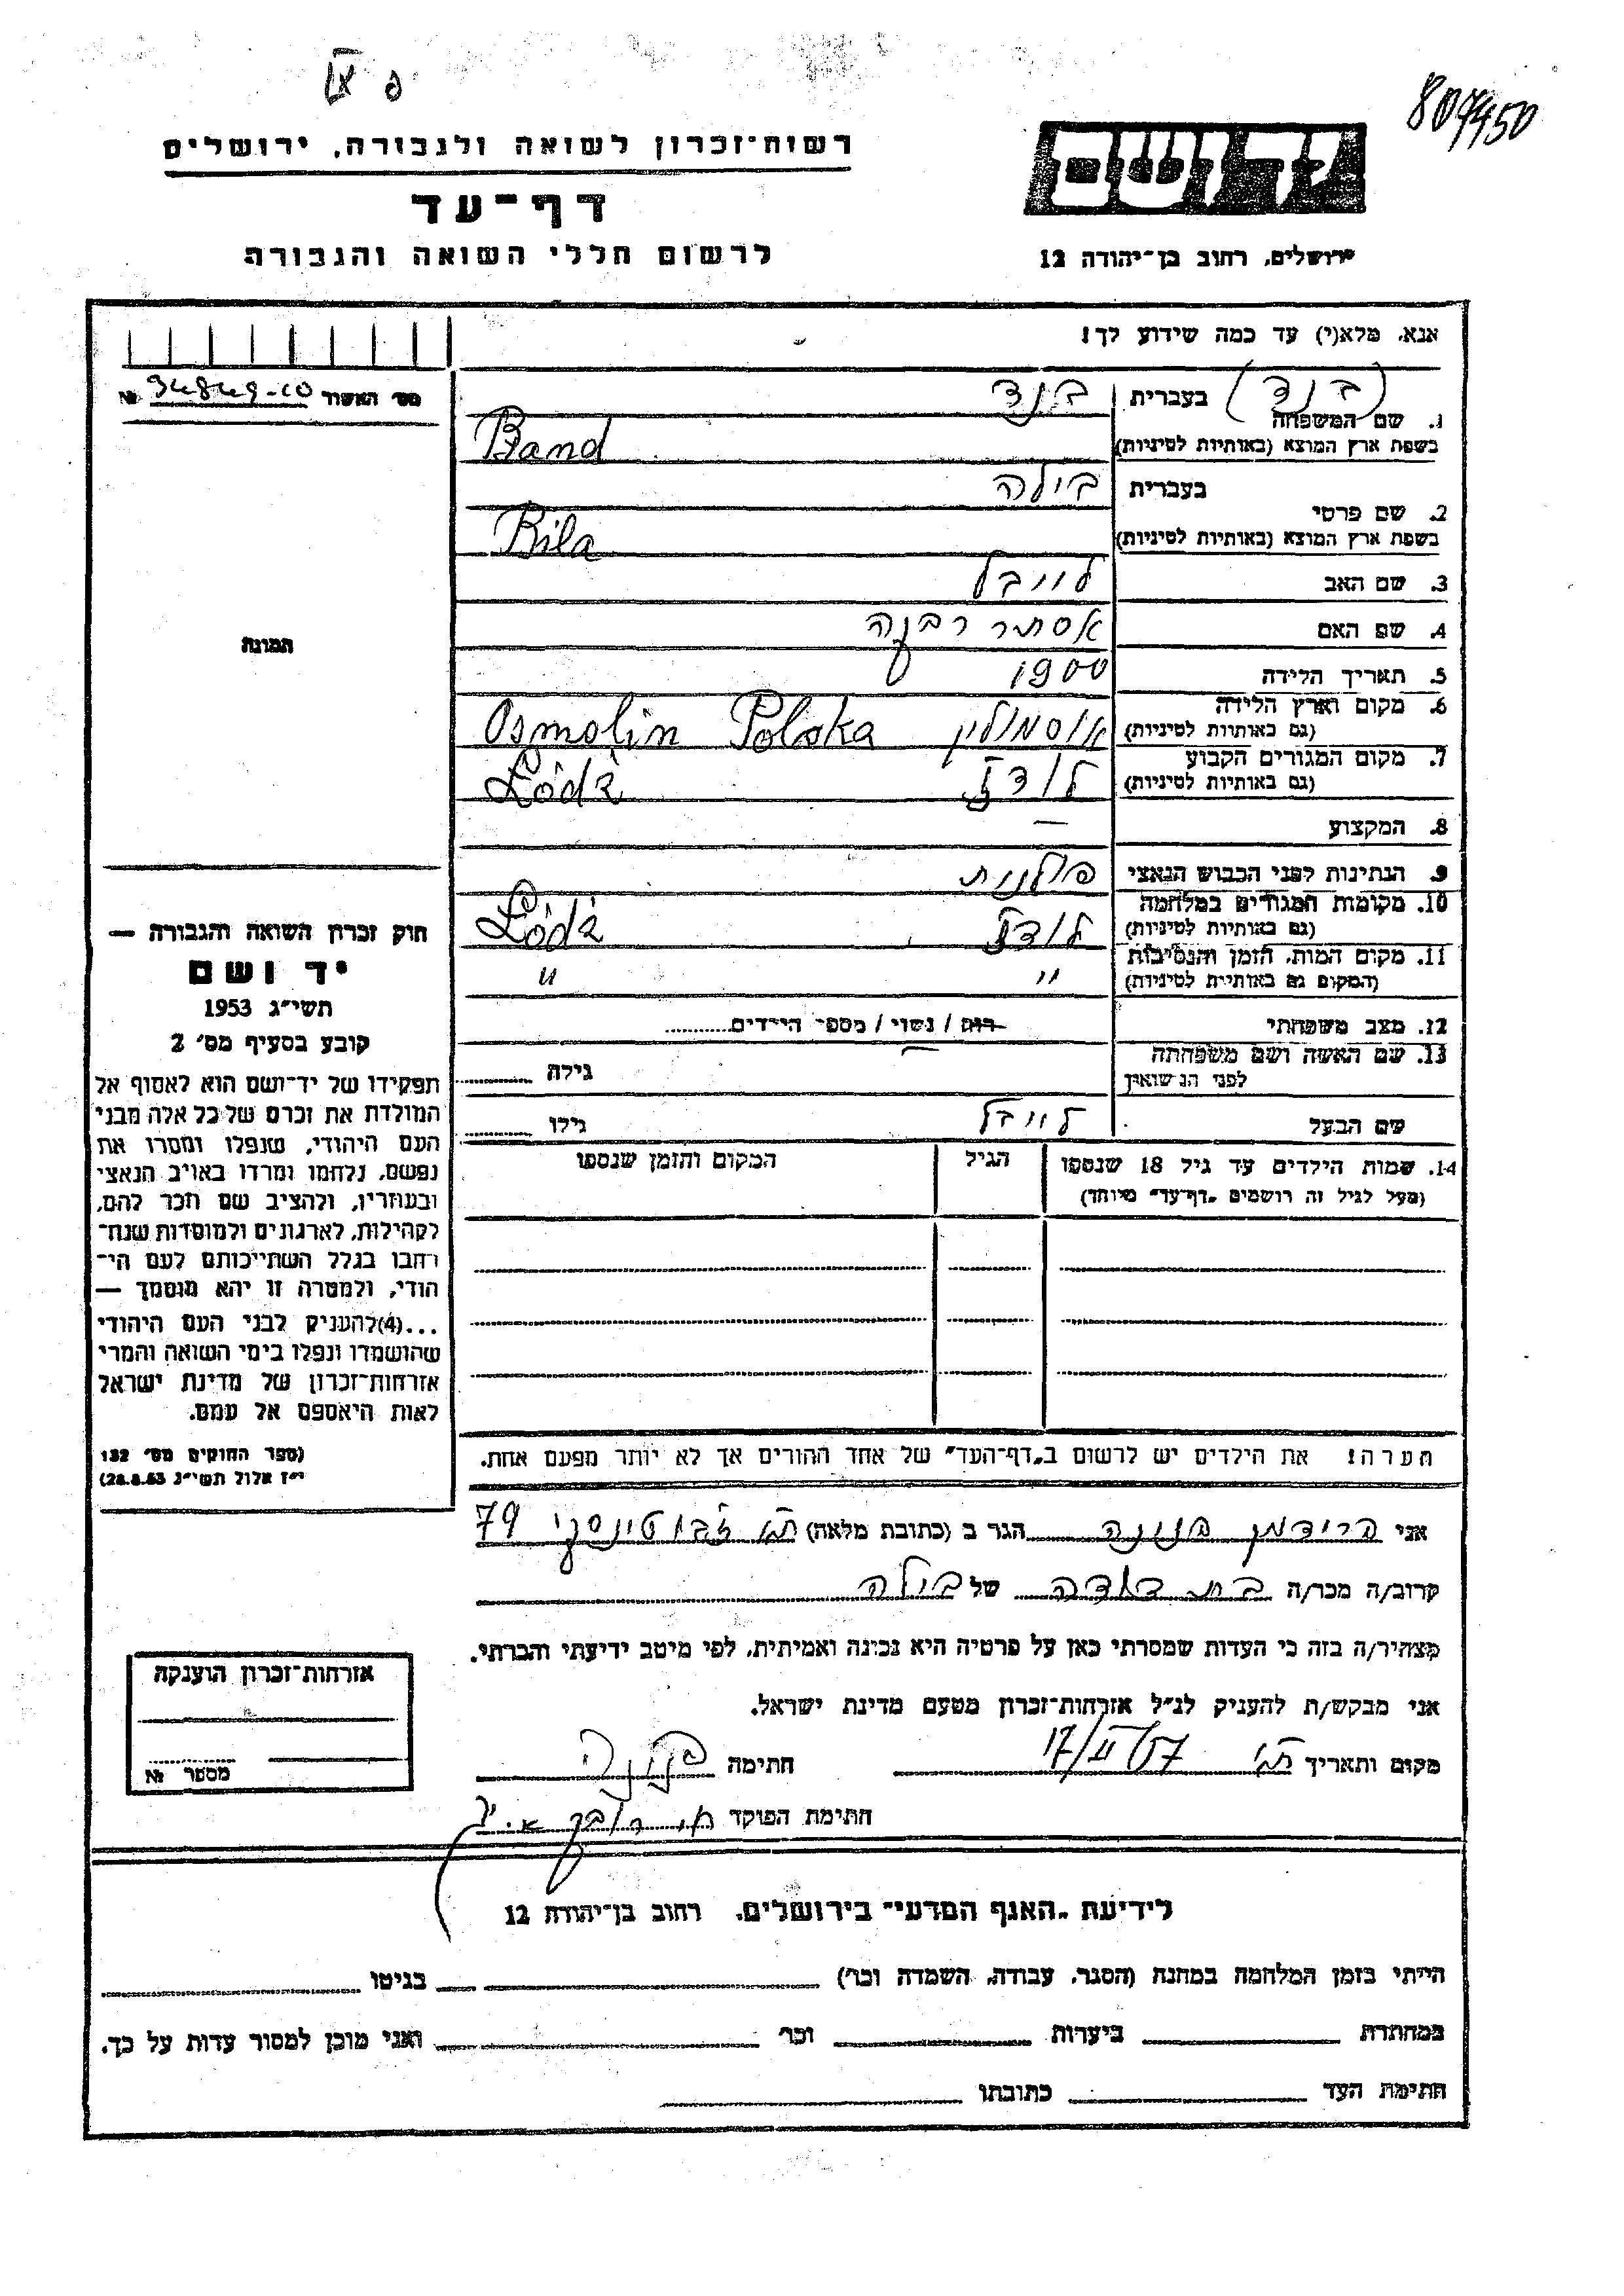 807450
רשות־זכרון לשואה ולגבורה, ירושלים
דף־עד
לרשום חללי השואה והגבורה
יד ושם
ירושלים, רחוב בן־יהודה 12
אנא, מלא(י) עד כמה שידוע לך!
מס׳ האשור №
1. שם המשפחה
בעברית (בנד) בנד
בשפת ארץ המוצא (באותיות לטיניות) Band
2. שם פרטי
בעברית בילה
בשפת ארץ המוצא (באותיות לטיניות) Bila
3. שם האב לייבל
4. שם האם אסתר רבקה
5. תאריך הלידה 1900
6. מקום וארץ הלידה
(גם באותיות לטיניות) אוסמולין Osmolin Polska
7. מקום המגורים הקבוע
(גם באותיות לטיניות) לודז Łódź
8. המקצוע —
9. הנתינות לפני הכבוש הנאצי פולנית
10. מקומות המגורים במלחמה
(גם באותיות לטיניות) לודז Łódź
11. מקום המות, הזמן והנסיבות
(המקום גם באותיות לטיניות) " "
12. מצב משפחתי רוק / נשוי / מספר הילדים
13. שם האשה ושם משפחתה
לפני הנישואין — גילה
שם הבעל לייבל גילו
14. שמות הילדים עד גיל 18 שנספו
(מעל לגיל זה רושמים „דף־עד״ מיוחד)
הגיל
המקום והזמן שנספו
הערה! את הילדים יש לרשום ב„דף־העד״ של אחד ההורים אך לא יותר מפעם אחת.
תמונה
חוק זכרון השואה והגבורה —
יד ושם
תשי״ג 1953
קובע בסעיף מס׳ 2
תפקידו של יד־ושם הוא לאסוף אל
המולדת את זכרם של כל אלה מבני
העם היהודי, שנפלו ומסרו את
נפשם, נלחמו ומרדו באויב הנאצי
ובעוזריו, ולהציב שם וזכר להם,
לקהילות, לארגונים ולמוסדות שנח־
רבו בגלל השתייכותם לעם הי־
הודי, ולמטרה זו יהא מוסמך —
...(4)להעניק לבני העם היהודי
שהושמדו ונפלו בימי השואה והמרי
אזרחות־זכרון של מדינת ישראל
לאות היאספם אל עמם.
(ספר החוקים מס׳ 132
י״ז אלול תשי״ג 28.8.53)
אני פרידמן פנינה הגר ב (כתובת מלאה) ת״א ז׳בוטינסקי 79
קרוב/ה מכר/ה בת דודה של בילה
מצהיר/ה בזה כי העדות שמסרתי כאן על פרטיה היא נכונה ואמיתית, לפי מיטב ידיעתי והכרתי.
אני מבקש/ת להעניק לנ״ל אזרחות־זכרון מטעם מדינת ישראל.
מקום ותאריך ת״א 17/II/57 חתימה פנינה
חתימת הפוקד
אזרחות־זכרון הוענקה
מספר №
לידיעת „האגף המדעי״ בירושלים, רחוב בן־יהודה 12
הייתי בזמן המלחמה במחנה (הסגר, עבודה, השמדה וכו׳) בגיטו
במחתרת ביערות וכו׳ ואני מוכן למסור עדות על כך.
חתימת העד כתובתו